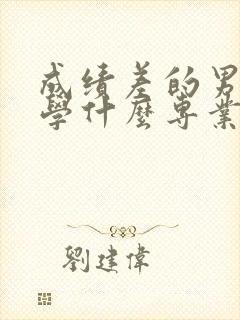 成绩差的男
學什麼專業
劉建偉